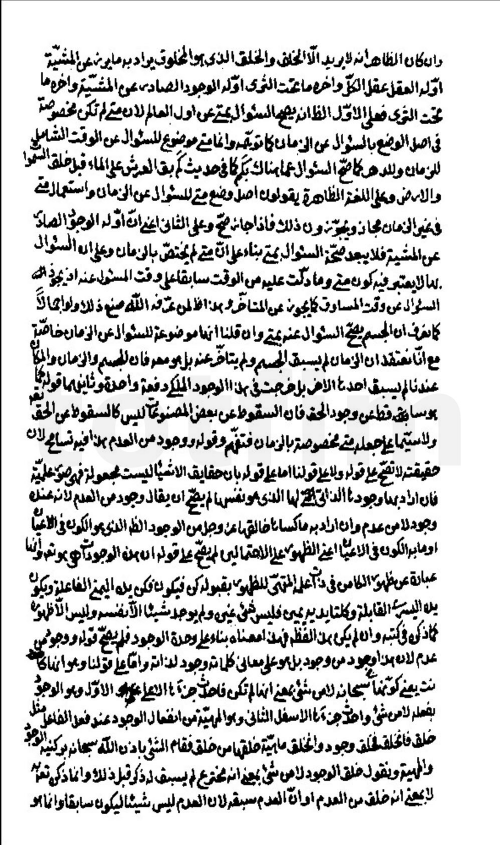 وان كان الظاهر انه لا يريد الا الخلق والخلق الذى هو المخلوق يراد به ما يوزن عن المشية
اوله العقل عقل الكل واخره ما تحت الثرى اوله الوجود الصادر عن المشية واخره ما
تحت الثرى فعلى الاول الظ انه يصح السؤال بمتى عن اول العالم لان متى لم تكن مخصوصة
فى اصل الوضع بالسؤال عن الزمان كما توهم وانما متى موضوع للسؤال عن الوقت الشامل
للزمان وللدهر كما صح السؤال عما هنالك بكم كما فى حديث كم بقى العرش على الماء قبل خلق السموات
والارض وعلى اللغة الظاهرة يقولون اصل وضع متى للسؤال عن الزمان واستعمال متى
فى غير الزمان مجاز ويجوزون ذلك فاذا جاز صح وعلى الثانى اعنى ان اوله الوجود الصادر
عن المشية فلا يبعد صحة السؤال بمتى بناء على ان متى لم يختص بالزمان وعلى ان السؤال
لا يعتبر فيه كون متى وما دلت عليه من الوقت سابقا على وقت المسئول عنه اذ يجوز
السؤال عن وقت المساوق كما يجوز عن المتاخر وهذا ظ لمن عرفه الله صنع ذلك ولو اجمالا
كما نعرف ان الجسم يصح السؤال عنه بمتى وان قلنا انها موضوعة للسؤال عن الزمان خاصة
مع انا نعتقد ان الزمان لم يسبق الجسم ولم يتاخر عنه بل هو معه فان الجسم والزمان والمكان
عندنا لم يسبق احدها الاخر بل خرجت فى هذا الوجود الملكى دفعة واحدة وثانيهما قوله
هو سابقة قطع عن وجود الحق فان السقوط عن بعض المصنوعات ليس كالسقوط عن الحق
ولا سيما على جعله متى مخصوصة بالزمان فتفهم وقوله ووجود من العدم هذا فيه تسامح لان
حقيقته لا تصح على قوله ولا على قولنا اما على قوله بان حقايق الاشياء ليست مجعولة فهى صور علمية
فان اراد بها وجودها الذاتى لها الذى هو نفسها لم يصح ان يقال وجود من العدم لانه عنده
وجود لا من عدم وان اراد به ما كساها خالقها عز وجل من الوجود الظه الذى هو الكون فى الاعيان
او ما به الكون فى الاعيان اعنى الظهور على الاحتمالين لم يصح على قوله ان هذا الوجود هو
عبارة عن ظهور الكامن فى ذات علمه المتهيئ للظهور بقبوله كن فيكون فكن يده اليمنى الفاعلة ويكون
يده اليسرى القابلة وكلتا يديه يمين فليس شئ غيره ولم يوجد شيئا الا نفسه وليس الا ظهوره
كما ذكر فى كتبه وان لم يكن هذا لفظه فهذا معناه بناء على وحدة الوجود فلم يصح قوله ووجود من
عدم لان هذا وجود من وجود بل هو على معانى كلماته وجود لذاته واما على قولنا وهو انها
سبحانه لا من شئ بمعنى انها لم تكن فاحدث جزءها الاعلى الاول وهو الوجود
بفعله لا من شئ واحدث جزءها الاسفل الثانى وهو المهية من انفعال الوجود عند فعل الفاعل
خلق فانخلق فخلق وجود وانخلق ماهية خلقها من خلق فقام الشئ باذن الله سبحانه بركنيه الوجود
والمهية ونقول خلق الوجود لا من شئ بمعنى انه مخترع لم يسبق له ذكر قبل ذلك وانما ذكر
لا بمعنى انه خلق من العدم او ان العدم سبقه لان العدم ليس شيئا ليكون سابقا وانما هو